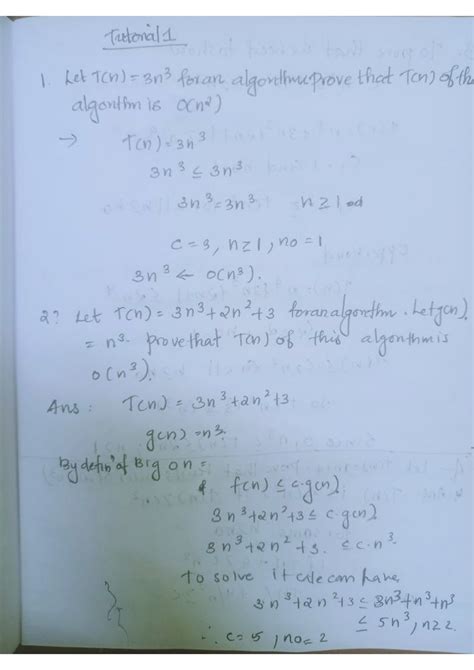 Tutorial 1
1. Let T(n) = 3n³ for an algorithm prove that T(n) of the
algorithm is O(n²)
→ T(n) = 3n³
3n³ ≤ 3n³
3n³ = 3n³ n ≥ 1
c = 3, n ≥ 1, no = 1
3n³ ← O(n³).
2? Let T(n) = 3n³ + 2n² + 3 for an algorithm. Let g(n)
= n³. prove that T(n) of this algorithm is
O(n³).
Ans : T(n) = 3n³ + 2n² + 3.
g(n) = n³.
By defin' of Big O n =
f(n) ≤ c.g(n)
3n³ + 2n² + 3 ≤ c.g(n)
3n³ + 2n² + 3. ≤ c.n³.
To solve it we can have
3n³ + 2n² + 3 ≤ 3n³ + n³ + n³
≤ 5n³, n ≥ 2.
∴ c = 5, no = 2